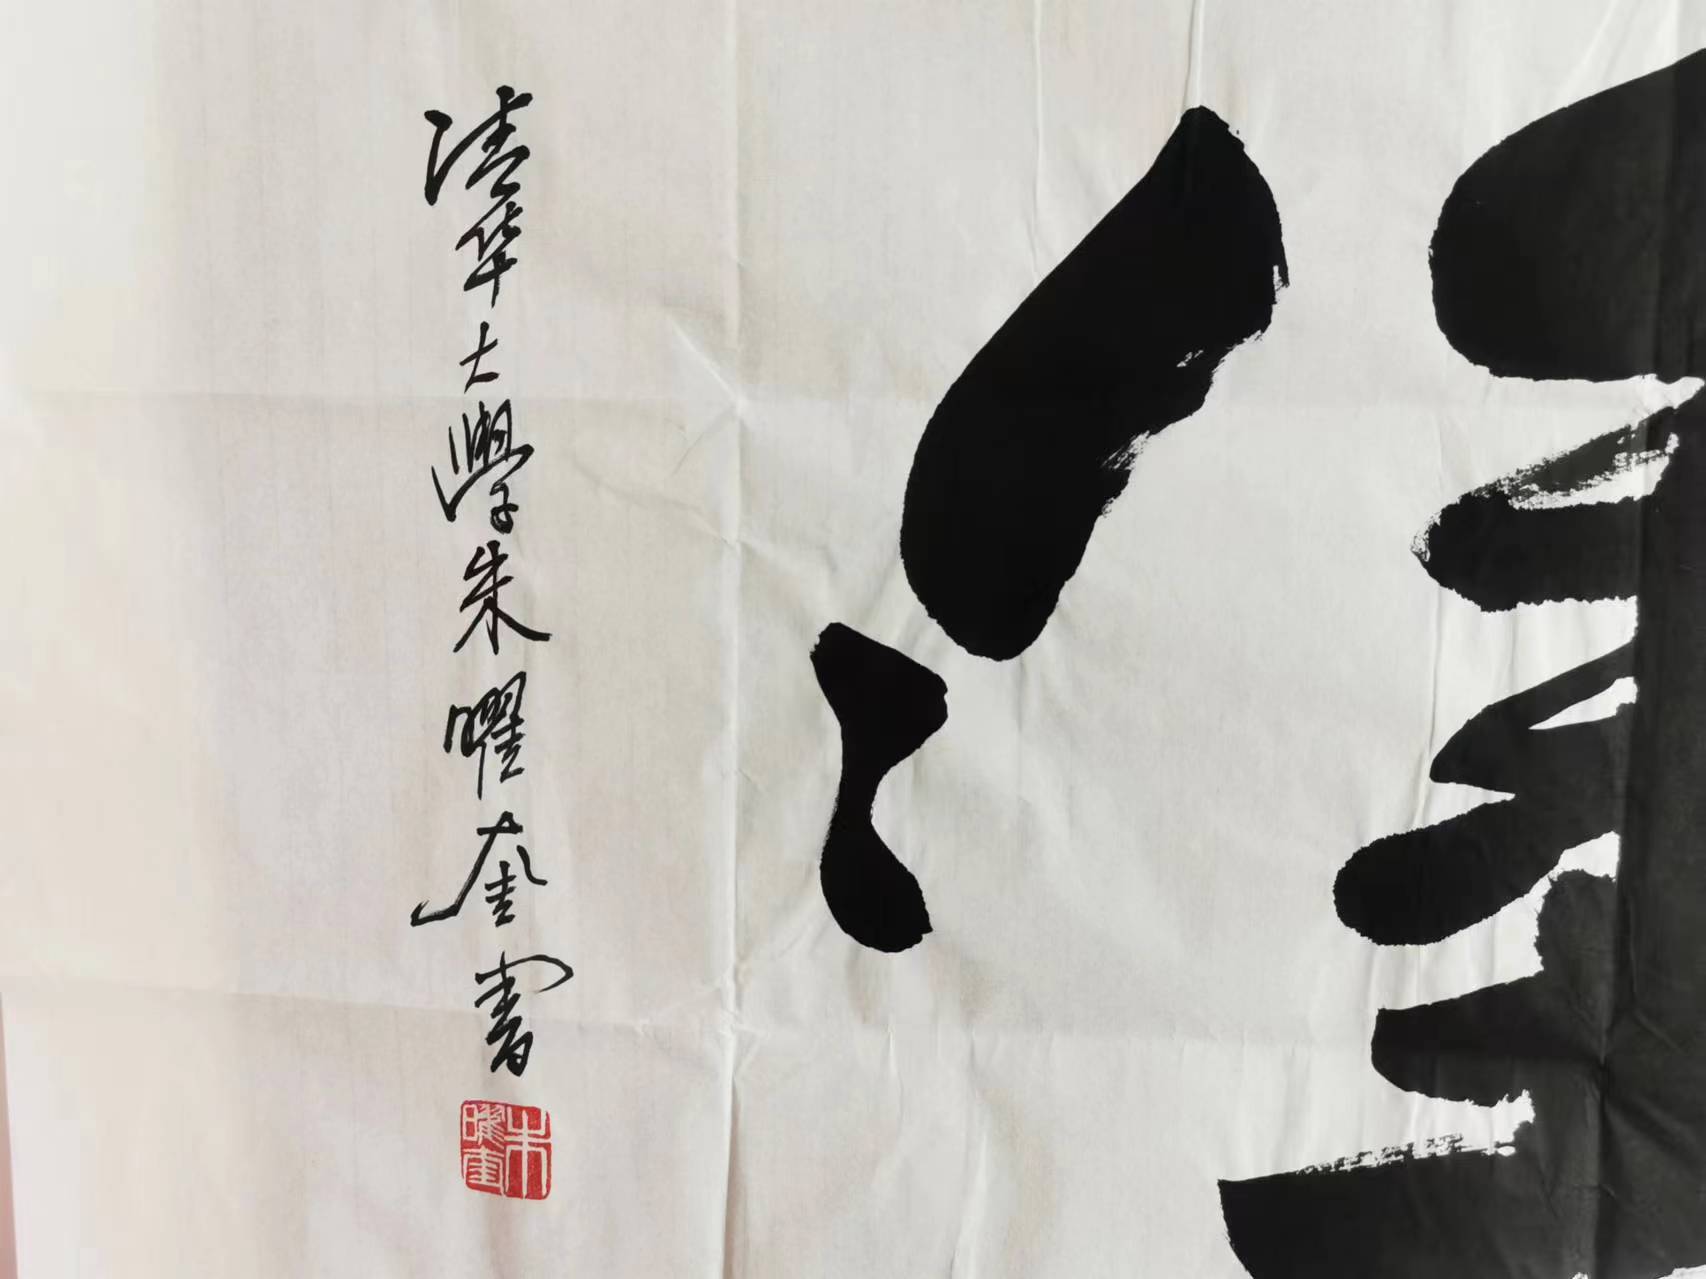 清华大學朱曜奎書
朱曜奎